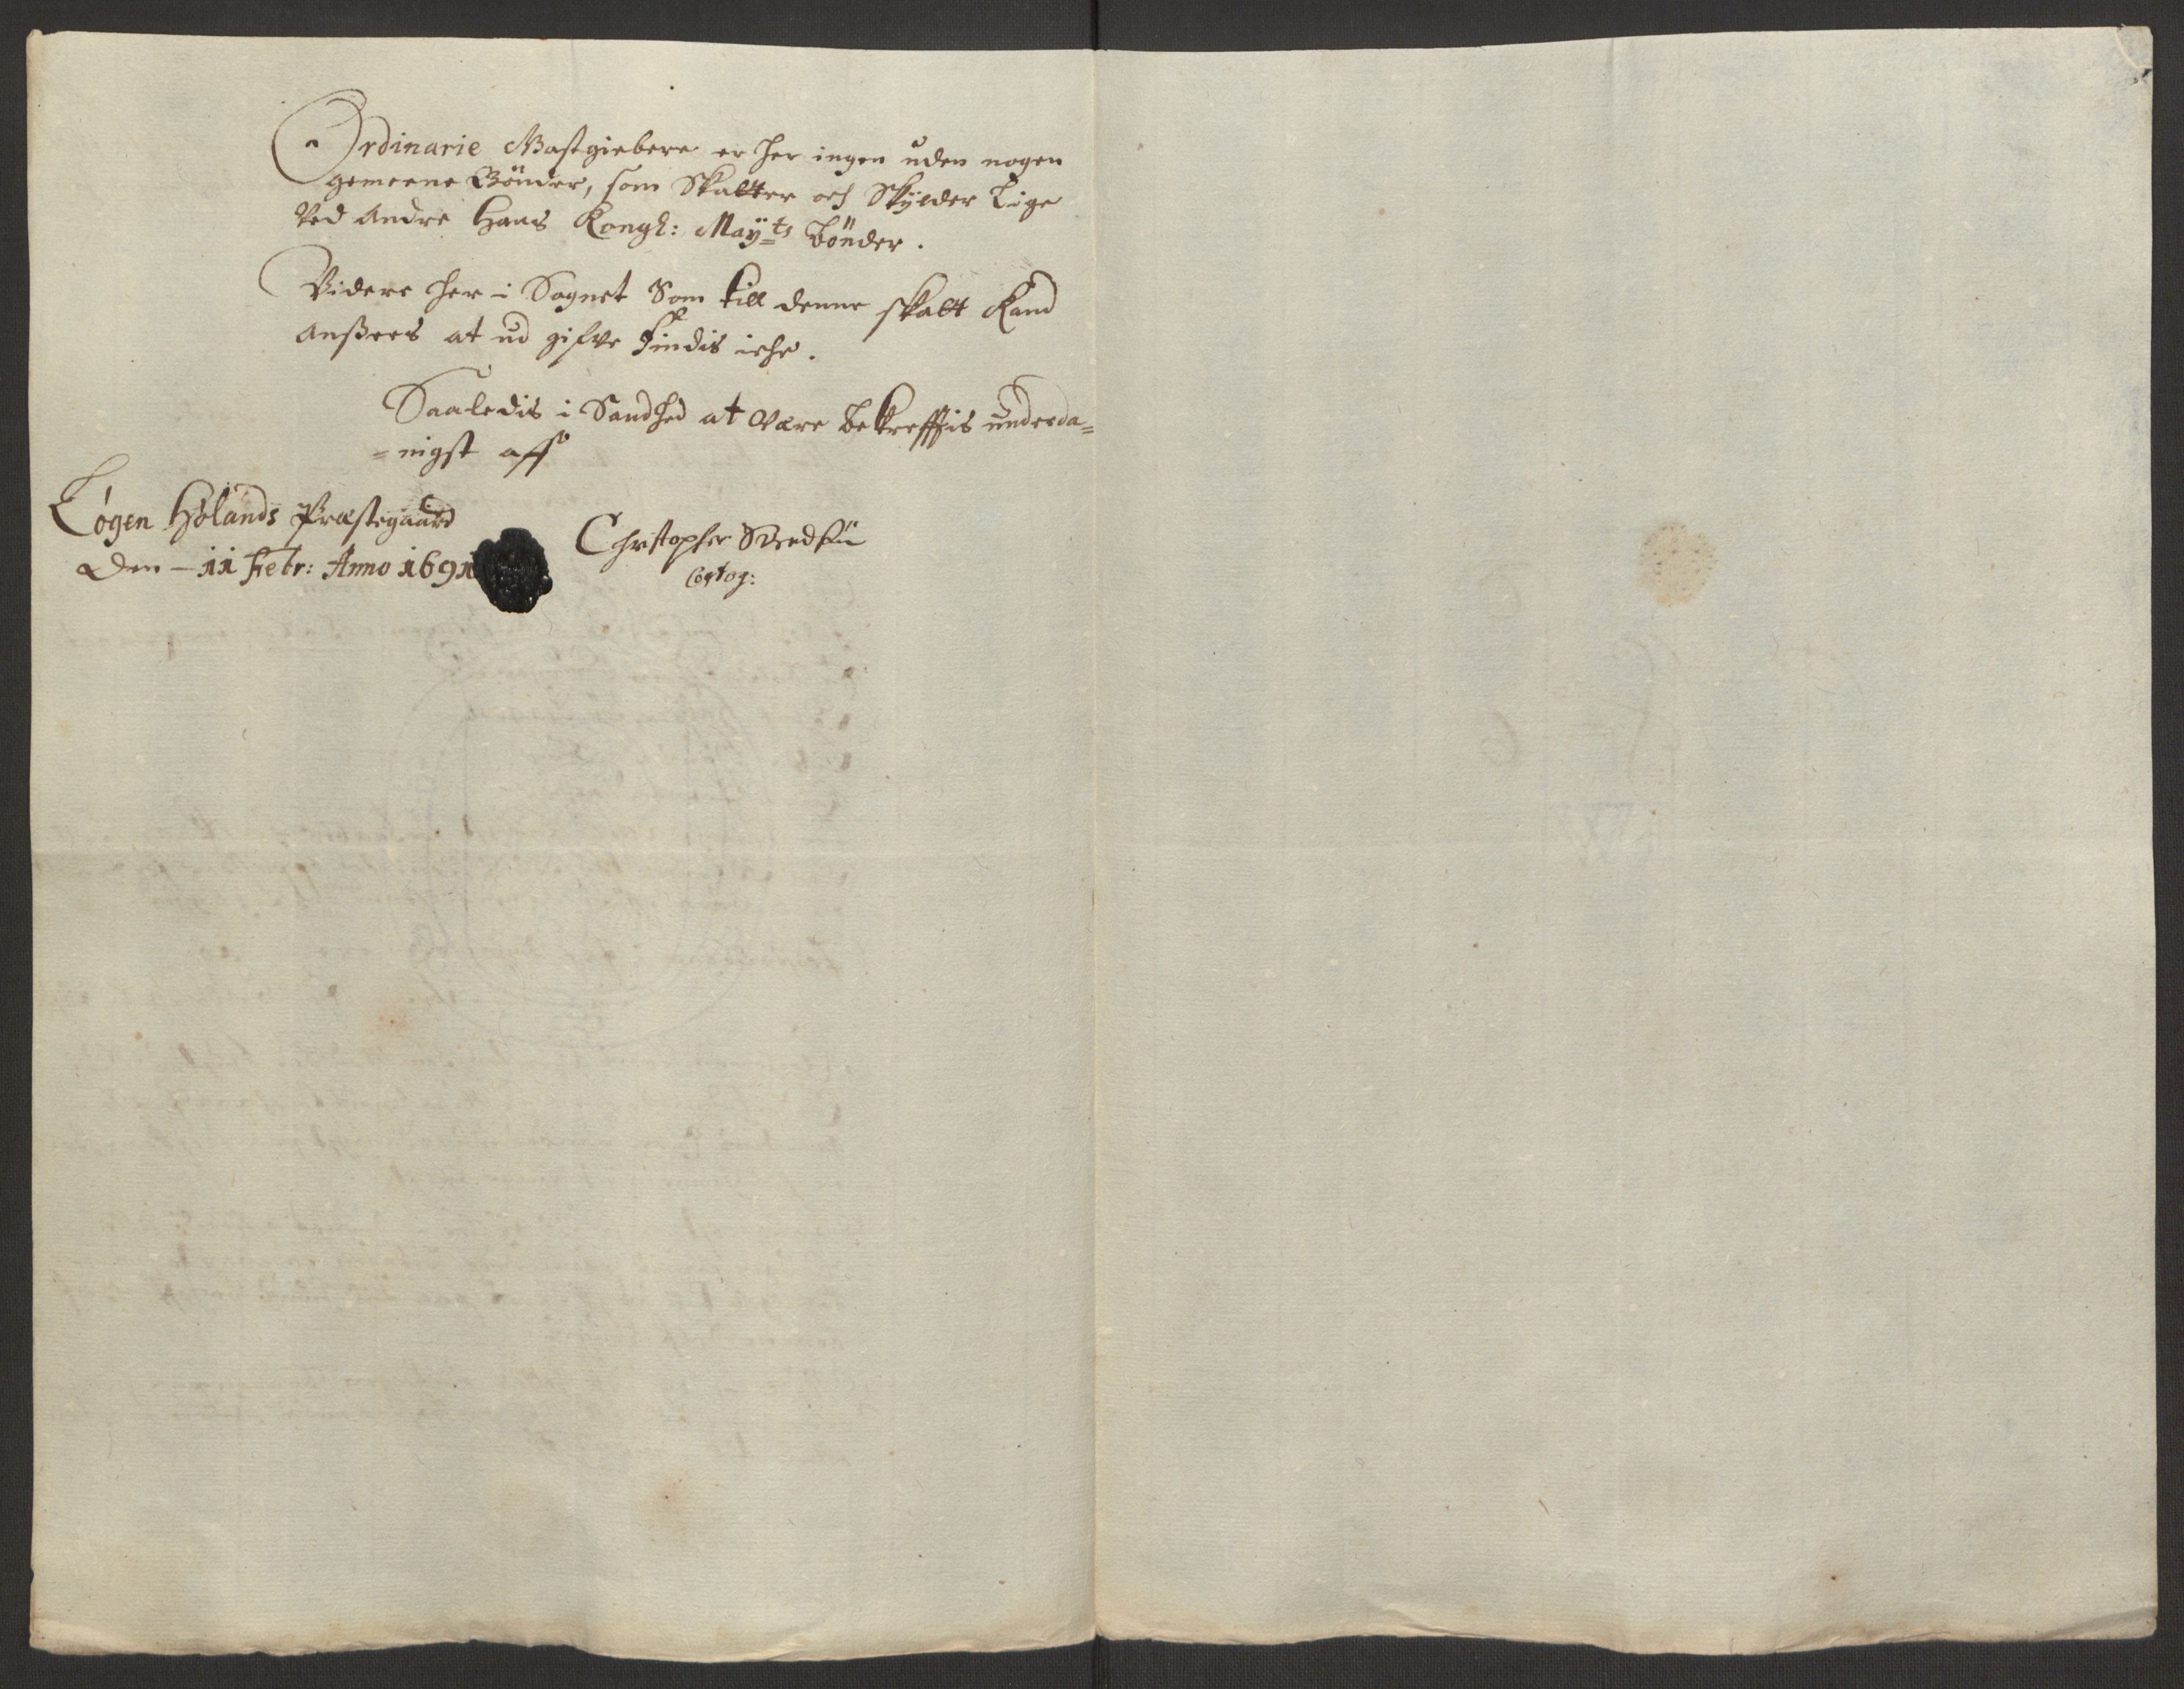 Ordinarie Gastgiebere er her ingen uden nogen
gemeene Bönder, som Skatter och Skylder Lige
Ved Andre Hans Kongl: Mayts bönder.
Videre her i Sognet Som till denne skatt Kand
ansees at ud gifve Findis iche.
Saaledis i Sandhed at Være bekrefftis underda=
=nigst aff
Løgen Hølands Præstegaard
Den - 11 Febr: Anno 1691
Christopher